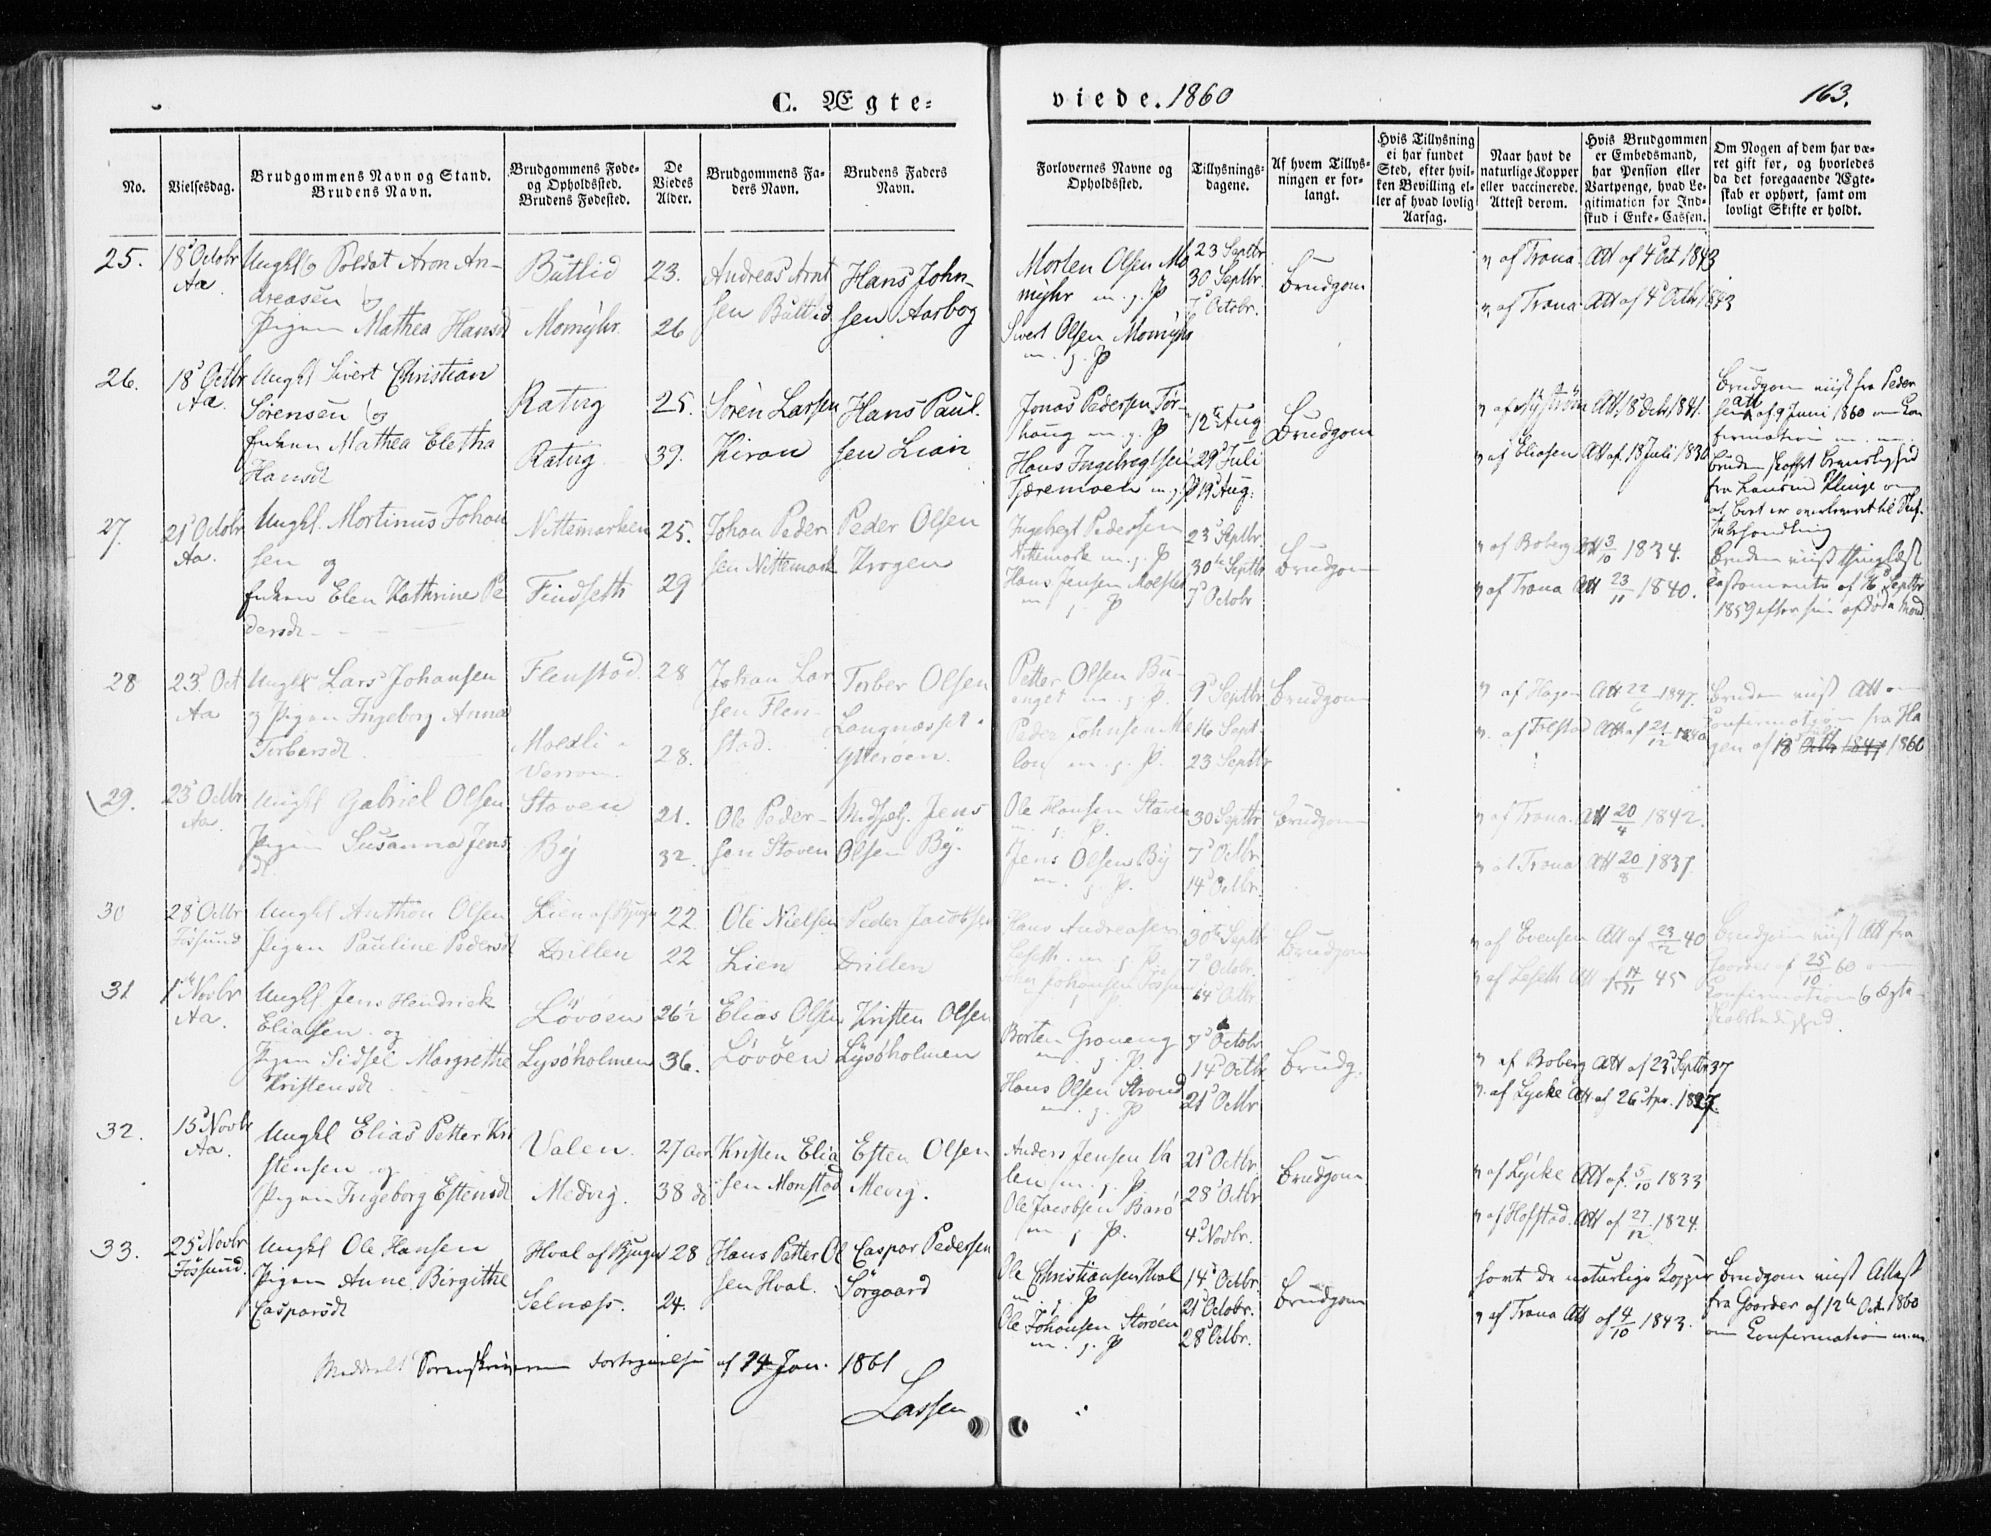 C. Ægte=
viede. 1860
163.
No.
Vielsesdag.
Brudgommens Navn og Stand.
Brudens Navn.
Brudgommens Føde-
og Opholdssted.
Brudens Fødested.
De
Viedes
Alder.
Brudgommens Fa-
ders Navn.
Brudens Faders
Navn.
Forlovernes Navne og
Opholdssted.
Tillysnings-
dagene.
Af hvem Tillys-
ningen er for-
langt.
Hvis Tillysning
ei har fundet
Sted, efter hvil-
ken Bevilling el-
ler af hvad lovlig
Aarsag.
Naar havt de
naturlige Kopper
eller vaccinerede.
Attest derom.
Hvis Brudgommen
er Embedsmand,
har Pension eller
Vartpenge, hvad Le-
gitimation for Ind-
skud i Enke-Cassen.
Om Nogen af dem har væ-
ret gift før, og hvorledes
da det foregaaende Ægte-
skab er ophørt, samt om
lovligt Skifte er holdt.
25.
18 Octobr
Aa.
Ungkl og Soldat Aron An-
dreasen og
Pigen Mathea Hansdt
Butlid
Momyhr.
23.
26
Andreas Arnt
sen Butlid
Hans John-
sen Aarbog
Morten Olsen Mo
myhr m. g. P
Sivert Olsen Momyhr
m. g. P
23 Septbr
30 Septbr.
7 Octobr.
Brudgom
v af Trona Att af 4 Oct 1843
v af Trona Att af 4 Octbr 1843
26.
18 Octbr
Aa.
Ungkl Sivert Christian
Sørensen og
Enken Mathea Eletha
Hansdt
Ratvig
Ratvig
25.
39.
Søren Larsen
Kiran
Hans Paul
sen Lian
Jonas Pedersen Tør-
houg m. g. P
Hans Ingebrigtsen
Tjæremoen m. g. P
12te Aug
29 Juli
19 Aug:
Brudgom
v af Eliasen Att af 18 Juli 1830
Brudgom viist fra Peder
sen Att af 9 Juni 1860 om Con
firmation m. m.
27.
21 Octobr
Aa.
Ungkl. Mortinus Johan
sen og
Enken Elen Kathrine Pe
dersdt
Nittemarken
Findseth
25.
29
Johan Peder
sen Nittemark
Peder Olsen
Krogen
Ingebrgt Pedersen
Nittemark m. g. P
Hans Jensen
m g. P
23 Septbr.
30te Septbr
7 Octobr
Brudgom
v af Boberg Att 3/10 1834.
v af Trona Att 23/11 1840.
Testamente af 16 Septbr
1859 efter sin afdøde Mand.
28
23 Oct
Aa
Ungkl Lars Johansen
og Pigen Ingeborg Anna
Torbersdt
Flenstad.
Moexli
Verran.
28
28.
Johan Lar
sen Flen
stad.
Torber Olsen
Langnæsset
Ytterøen.
Petter Olsen Bu-
enget m. g. P.
Peder Johnsen
m. g. P.
9 Septbr
16 Sept.
23 Septbr
Brudgom
v af Hagen Att 22/6 1847.
v. af Filstad Att af 21/12 1840
Bruden viist Att om
Confirmation fra Ha
gen af 18 1860
29.
23 Octbr
Aa.
Ungkl Gabriel Olsen
Pigen Susanna Jens
dt
Staven
By
21.
32.
Ole Peder-
sen Staven
Jens
Olsen By.
Ole Hansen Staven
m. g. P.
Jens Olsen By
m. g. P.
30 Septbr
7 Octbr.
14 Octbr.
Brudgom
v af Trona Att 20/4 1842.
v af Trona Att 20/8 1837.
30
28 Octbr
Fossund
Ungkl Anthon Olsen
Pigen Pauline Pedersdt
Lien af Bjugn
Drillen
22
22
Ole Nielsen
Lien
Peder Jacobsen
Drillen
Hans Andreasen
Leseth m. g. P.
30te Septbr
7 Octobr.
14 Octbr.
Brudgom
v af Evensen Att af 23/2 40
v af Leseth Att af 14/11 45
Brudgom viist Att fra
Gaarder af 25/10 60 om
Confirmation og Ægte-
skabsledighed.
31
1te Novbr
Aa.
Ungkl Jens Hendrick
Eliasen og
Pigen Sidsel Margrethe
Kristensdt
Løvøen
Lysøholmen
26½
36.
Elias Olsen
Løvøen
Kristen Olsen
Lysøholmen
Morten Groneng
m. g. P.
Hans Olsen Strand
m. g. P
7 Octobr
14 Octbr.
21 Octbr
Brudg.
v af Boberg Att af 23 Septbr 37
v. af Lycke Att af 26 Apr. 1827.
32.
15 Novbr
Aa.
Ungkl Elias Petter Kri
stensen og
Pigen Ingeborg Estensdt
Valen.
Medvig.
27 Aar
38 do
Kristen Elia
sen Monstad
Esten Olsen
Mevig.
Anders Jensen Va
len m. g. P
Ole Jacobsen Barø
m g P.
21 Octbr.
28 Octbr
4 Novbr.
Brudgom
v af Lycke Att af 5/10 1833
v af Hofstad Att af 27/12 1824.
33.
25 Novbr
Fossund.
Ungkl Ole Hansen
Pigen Anne Birgithe
Caspersdt
Hval af Bjugn
Selnæss.
28
24.
Hans Petter Ol
sen Hval.
Caspar Pedersen
Sørgaard
Ole Christiansen Hval
m. g. P
Ole Johansen Storøen
m. g. P
14 Octbr.
21 Octobr.
28 Octbr.
Brudgom
havt de naturlige Kopper
v af Trona Att af 4/10 1843.
Brudgom viist Attest
fra Gaarder af 12te Oct. 1860
om Confirmation m.m.
Meddeelt Sorenskriveren Fortegnelse af 14 Jan. 1861
Lassen